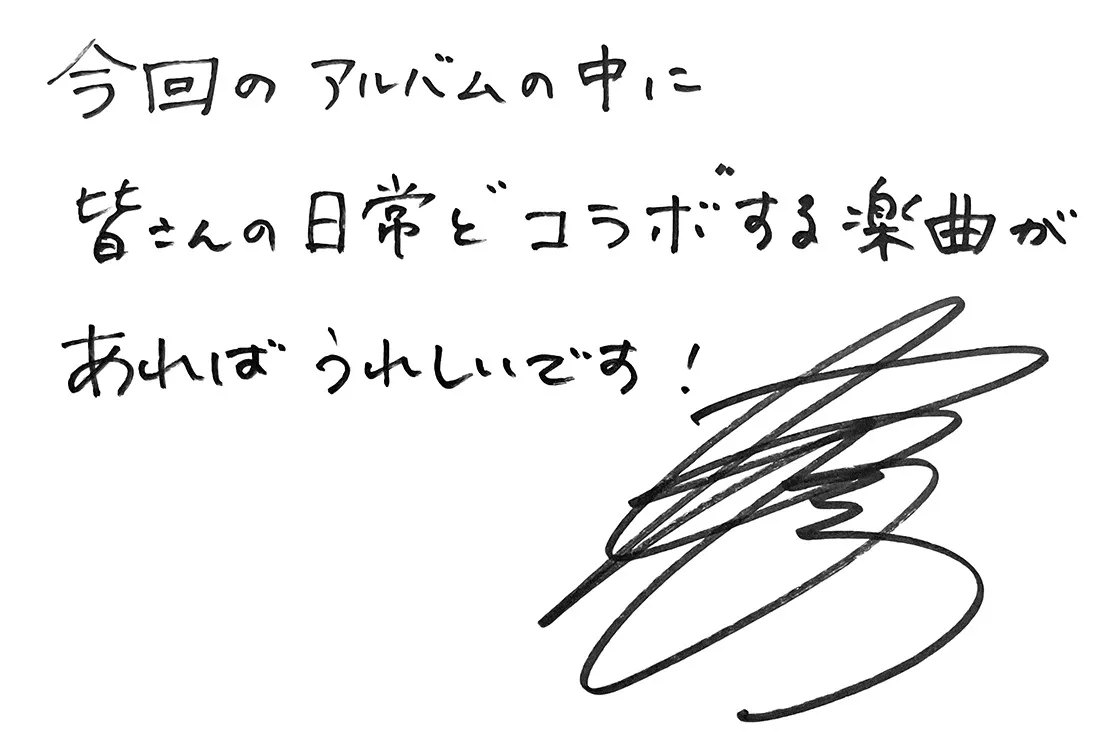 今回のアルバムの中に
皆さんの日常どコラボする楽曲が
あればうれしいです！